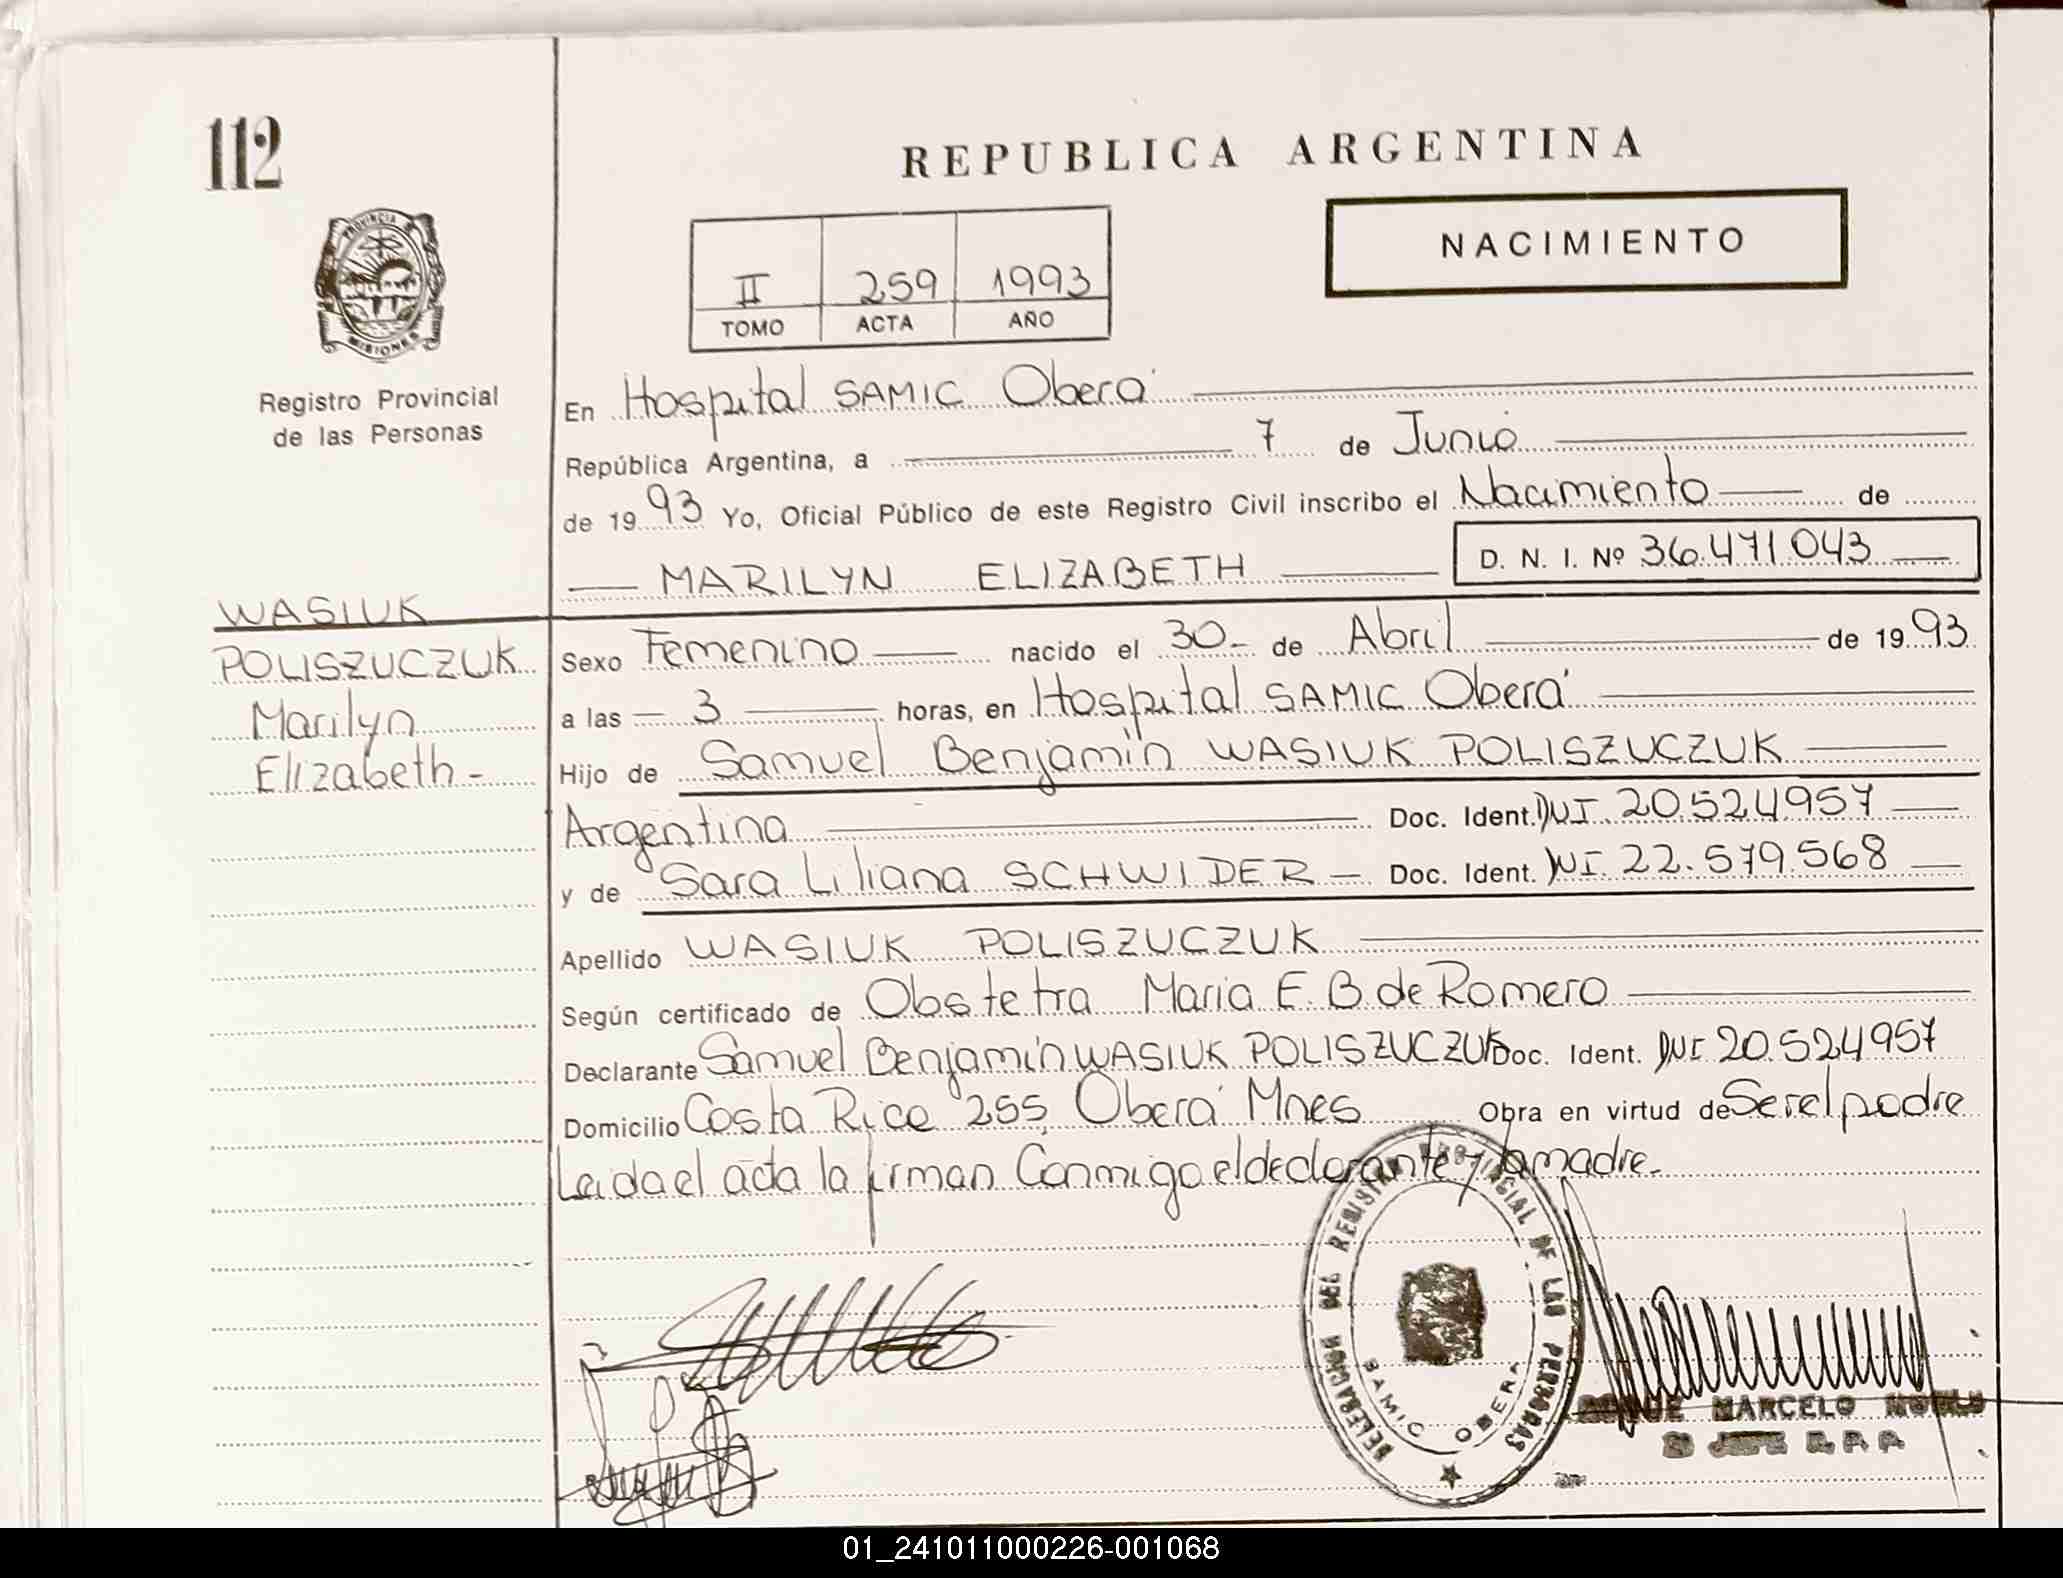 112
REPUBLICA ARGENTINA
NACIMIENTO
PROVINCIA
MISIONES
II 259 1993
TOMO ACTA AÑO
Registro Provincial
de las Personas
En Hospital SAMIC Oberá
República Argentina, a 7 de Junio
de 1993 Yo, Oficial Público de este Registro Civil inscribo el Nacimiento de
MARILYN ELIZABETH D. N. I. Nº 36.471.043
WASIUK
POLISZUCZUK
Marilyn
Elizabeth -
Sexo Femenino nacido el 30 - de Abril de 1993
a las 3 horas, en Hospital SAMIC Oberá
Hijo de Samuel Benjamín WASIUK POLISZUCZUK
Argentina Doc. Ident. DNI. 20.524.957
y de Sara Liliana SCHWIDER - Doc. Ident. DNI. 22.579.568
Apellido WASIUK POLISZUCZUK
Según certificado de Obstetra Maria E. B. de Romero
Declarante Samuel Benjamín WASIUK POLISZUCZUK Doc. Ident. DNI 20.524957
Domicilio Costa Rica 255, Oberá Mnes Obra en virtud de Ser el padre
Leida el acta la firman Conmigo el declarante y la madre.
DELEGACION DEL REGISTRO PROVINCIAL DE LAS PERSONAS
SAMIC OBERA
MARCELO
R. P. P.
01_241011000226-001068